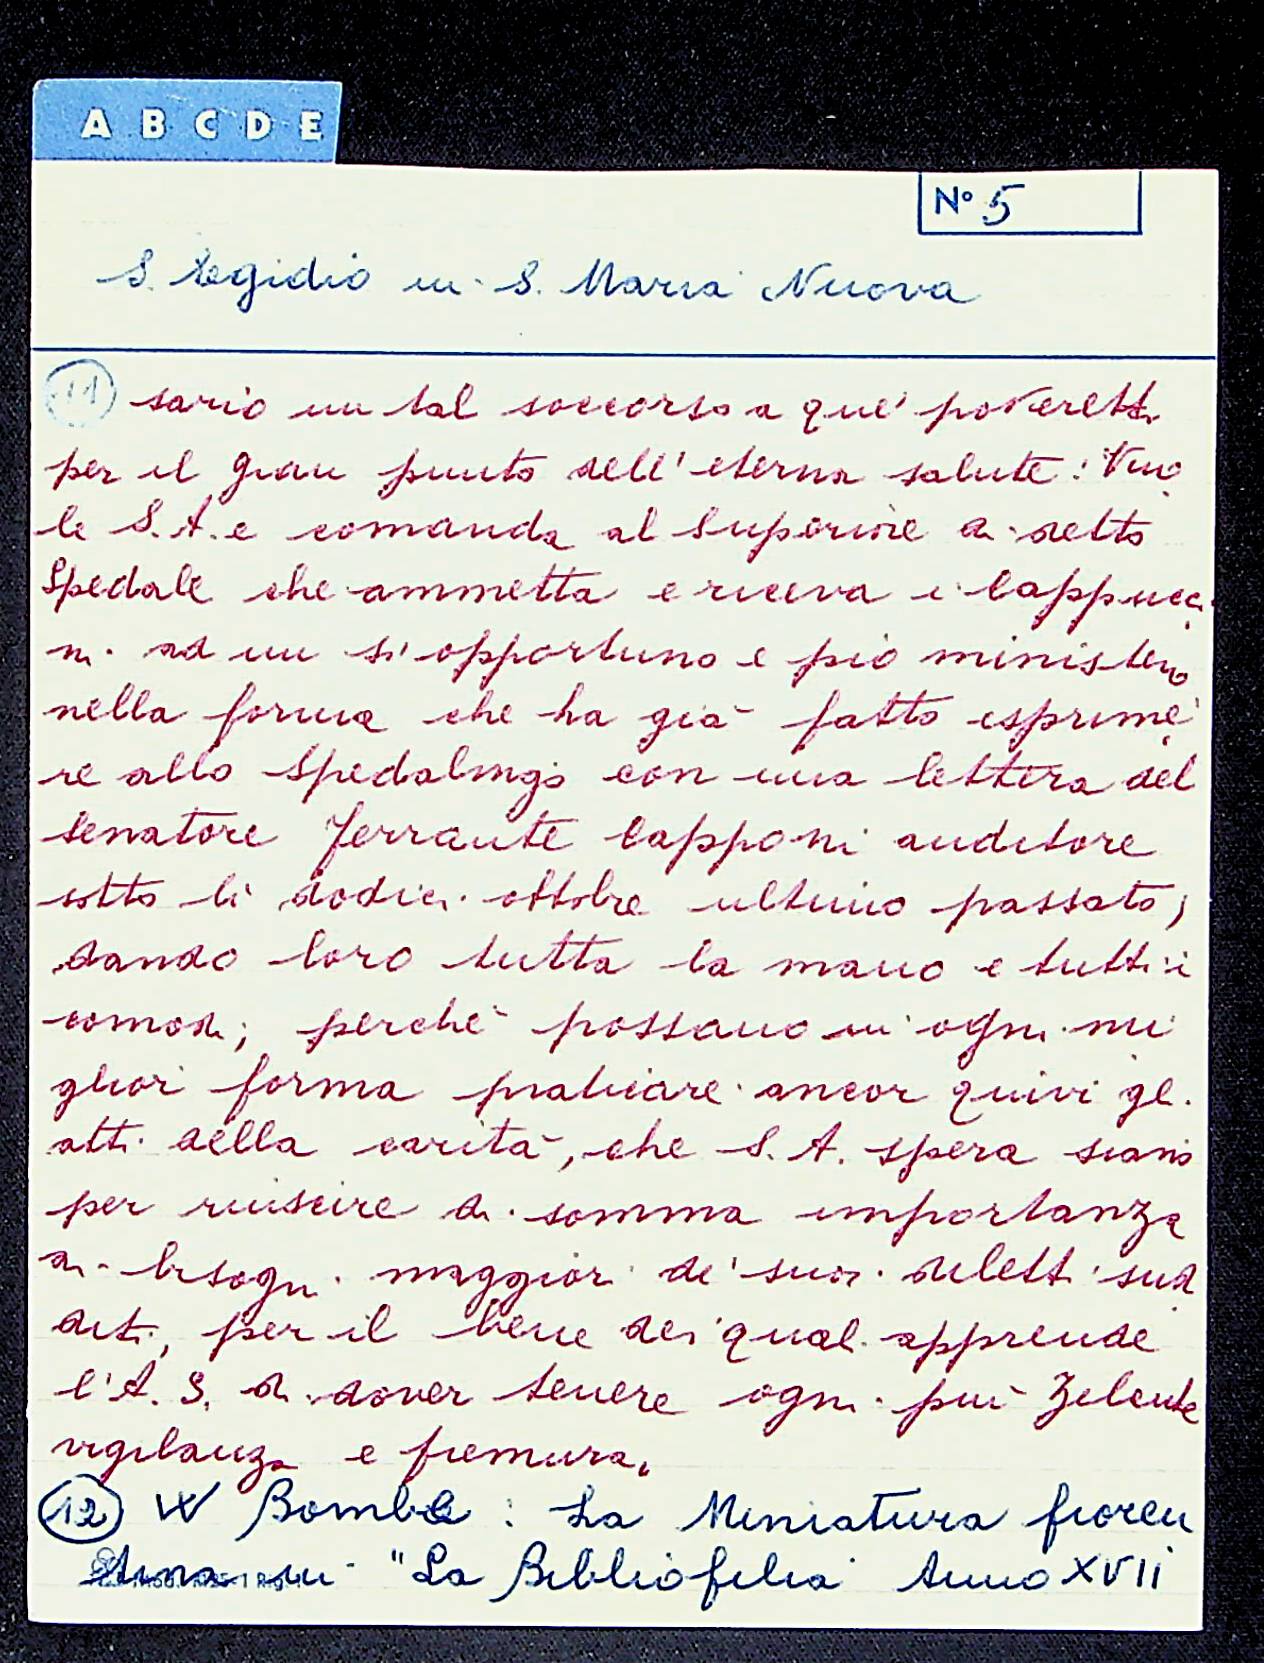 A B C D E
Nº 5
S. Egidio in S. Maria Nuova
11 sario un tal soccorso a que' poveretti
per il gran punto dell'eterna salute: Vuo
le S.A. e comanda al Superiore di detto
Spedale che ammetta e riceva i Cappucci
ni ad un sì opportuno e pio ministero
nella forma che ha già fatto esprime
re allo Spedalingo con una lettera del
senatore Ferrante Capponi auditore
sotto lì dodici ottobre ultimo passato;
dando loro tutta la mano e tutti i
comodi; perchè possano in ogni mi
glior forma praticare ancor quivi gli
atti della carità, che S. A. spera siano
per riuscire di somma importanza
ai bisogni maggiori de' suoi diletti sud
diti, per il bene dei quali apprende
l'A. S. di dover tenere ogni più zelente
vigilanza e premura.
12 W Bombe: La Miniatura fioren
tina in "La Bibliofilia Anno XVII